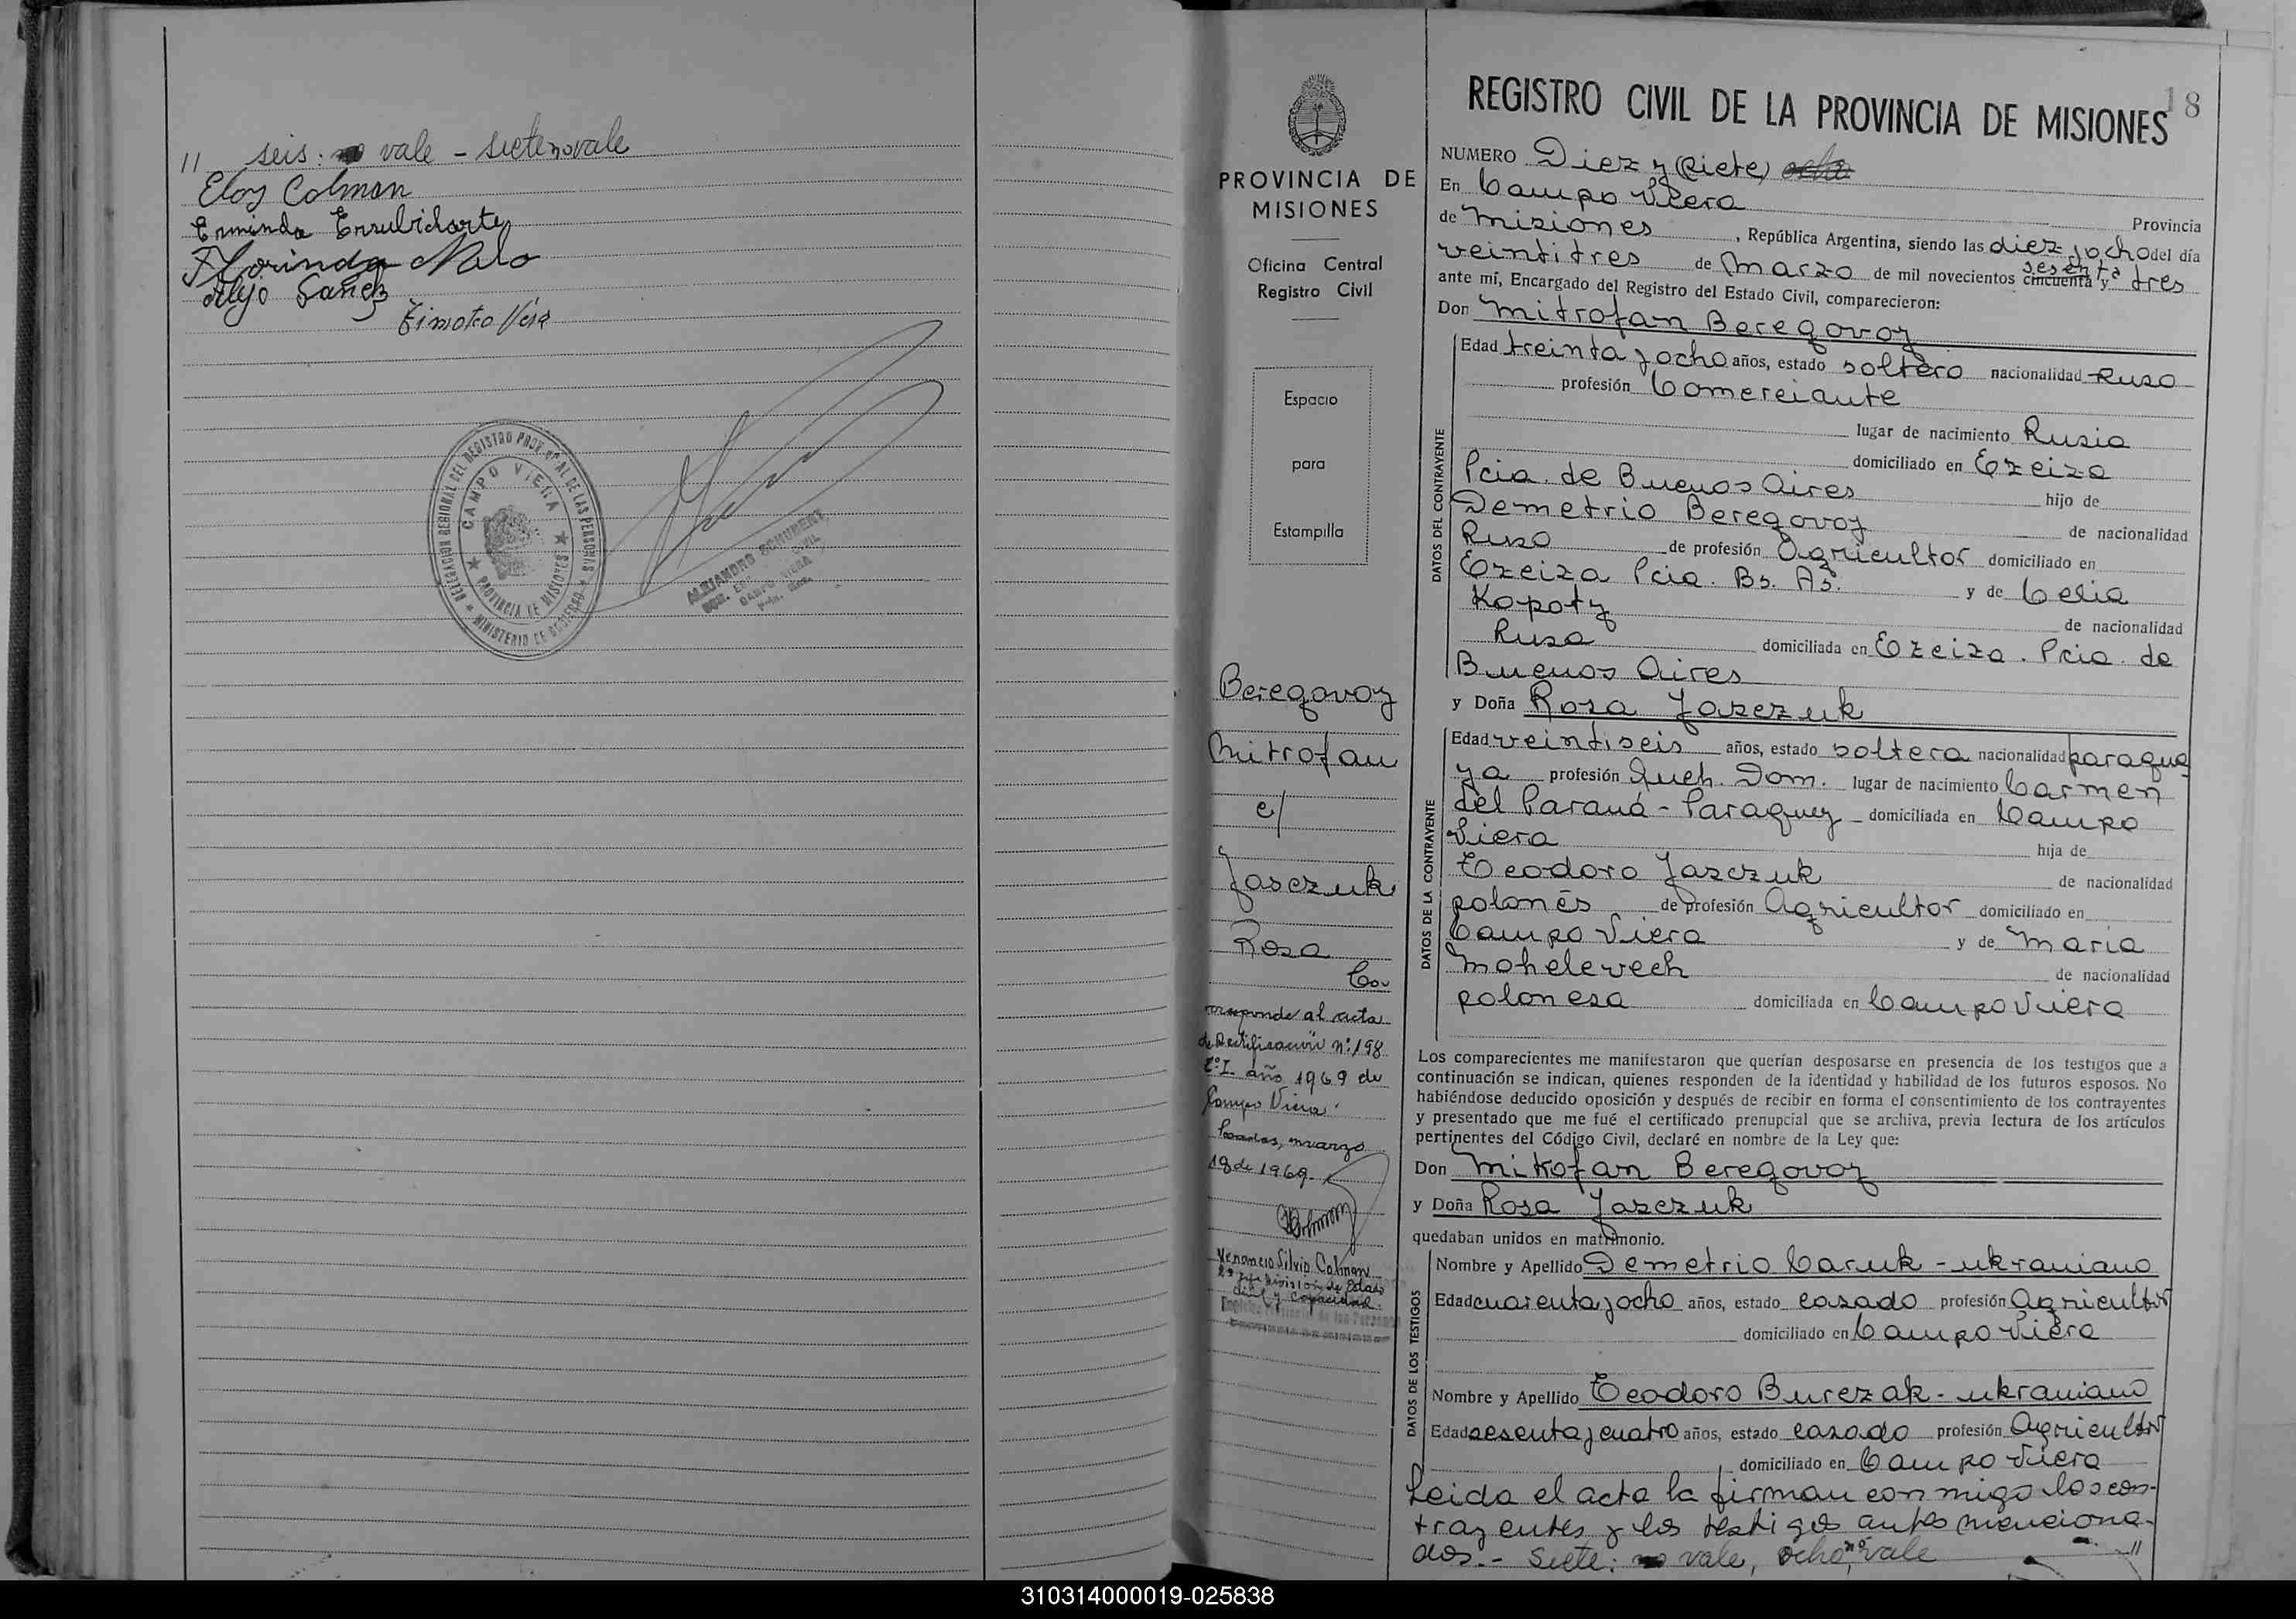 11 seis: no vale - siete no vale
Eloy Colman
Erminda Errubidarte
Florinda Malo
Alejo Sanch
Timoteo Vera
DELEGACION REGIONAL DEL REGISTRO PROV. DE LAS PERSONAS
CAMPO VIERA
PROVINCIA DE MISIONES
MINISTERIO DE GOBIERNO
ALEJANDRO
CIVIL
CAMPO VIERA
PROVINCIA DE
MISIONES
Oficina Central
Registro Civil
Espacio
para
Estampilla
Beregovoy
Mitrofan
c/
Jasczuk
Rosa
Co-
rresponde al acta
de Rectificación Nº 198
Tº I año 1969 de
Campo Viera
Posadas, marzo
18 de 1969.-
Venancio Silvio Colman
2º Jefe División de Estado
Civil y Capacidad.
18
REGISTRO CIVIL DE LA PROVINCIA DE MISIONES
NUMERO Diez y (siete) ocho
En Campo Viera Provincia
de Misiones, República Argentina, siendo las diez y ocho del día
veintitres de Marzo de mil novecientos cincuenta sesenta y tres
ante mí, Encargado del Registro del Estado Civil, comparecieron:
Don Mitrofan Beregovoy
DATOS DEL CONTRAYENTE
Edad treinta y ocho años, estado soltero nacionalidad Ruso
profesión Comerciante
lugar de nacimiento Rusia
domiciliado en Ezeiza
Pcia. de Buenos Aires hijo de
Demetrio Beregovoy de nacionalidad
Ruso de profesión Agricultor domiciliado en
Ezeiza Pcia. Bs. As. y de Celia
Kopoty de nacionalidad
Rusa domiciliada en Ezeiza. Pcia. de
Buenos Aires
y Doña Rosa Jasczuk
DATOS DE LA CONTRAYENTE
Edad veintiseis años, estado soltera nacionalidad paragua
ya profesión Queh. Dom. lugar de nacimiento Carmen
del Paraná - Paraguay domiciliada en Campo
Viera hija de
Teodoro Jasczuk de nacionalidad
polonés de profesión Agricultor domiciliado en
Campo Viera y de María
Mohelevech de nacionalidad
polonesa domiciliada en Campo Viera
Los comparecientes me manifestaron que querían desposarse en presencia de los testigos que a
continuación se indican, quienes responden de la identidad y habilidad de los futuros esposos. No
habiéndose deducido oposición y después de recibir en forma el consentimiento de los contrayentes
y presentado que me fué el certificado prenupcial que se archiva, previa lectura de los artículos
pertinentes del Código Civil, declaré en nombre de la Ley que:
Don Mitrofan Beregovoy
y Doña Rosa Jasczuk
quedaban unidos en matrimonio.
DATOS DE LOS TESTIGOS
Nombre y Apellido Demetrio Caruk - ukraniano
Edad cuarenta y ocho años, estado casado profesión Agricultor
domiciliado en Campo Viera
Nombre y Apellido Teodoro Burczak - ukraniano
Edad sesenta y cuatro años, estado casado profesión Agricultor
domiciliado en Campo Viera
Leida el acta la firman conmigo los con-
trayentes y los testigos antes menciona-
dos.- Siete: no vale, ocho, no vale 11
310314000019-025838